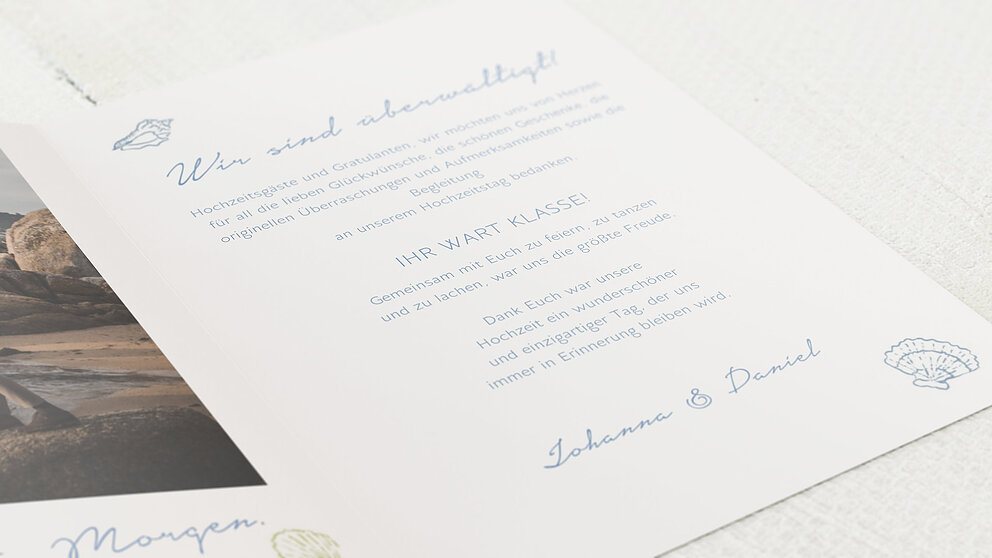 Wir sind überwältigt!
Hochzeitsgäste und Gratulanten, wir möchten uns von Herzen
für all die lieben Glückwünsche, die schönen Geschenke, die
originellen Überraschungen und Aufmerksamkeiten sowie die
Begleitung
an unserem Hochzeitstag bedanken.
IHR WART KLASSE!
Gemeinsam mit Euch zu feiern, zu tanzen
und zu lachen, war uns die größte Freude.
Dank Euch war unsere
Hochzeit ein wunderschöner
und einzigartiger Tag, der uns
immer in Erinnerung bleiben wird.
Johanna & Daniel
Morgen.